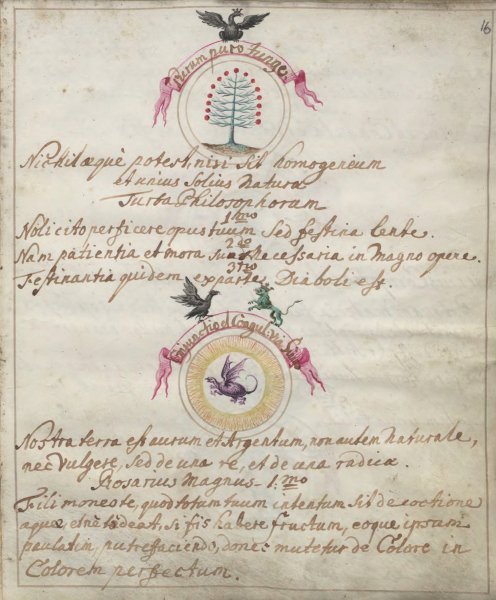 16
Purum puro Iunge
Nichil æquè potest, nisi Sit homogeneum
et unius Solius Natura
Turba Philosophorum
1mo
Noli cito perficere opus tuum Sed festina lente.
2do
Nam patientia et mora Sunt Necessaria in Magno opere.
3tio
Festinantia quidem ex parte Diaboli est.
Coniunctio et Coagul:
Nostra terra est aurum et Argentum, non autem naturale,
nec Vulgere, Sed de una re, et de una radice.
Rosarius Magnus - 1.mo
Fili moneo te, quod totum tuum intentum Sit de coctione
aquæ et ne tideat, si fis habere fructum, eoque ipsam
paulatim, putreffaciendo, donec mutetur de Colore in
Colorem perfectum.